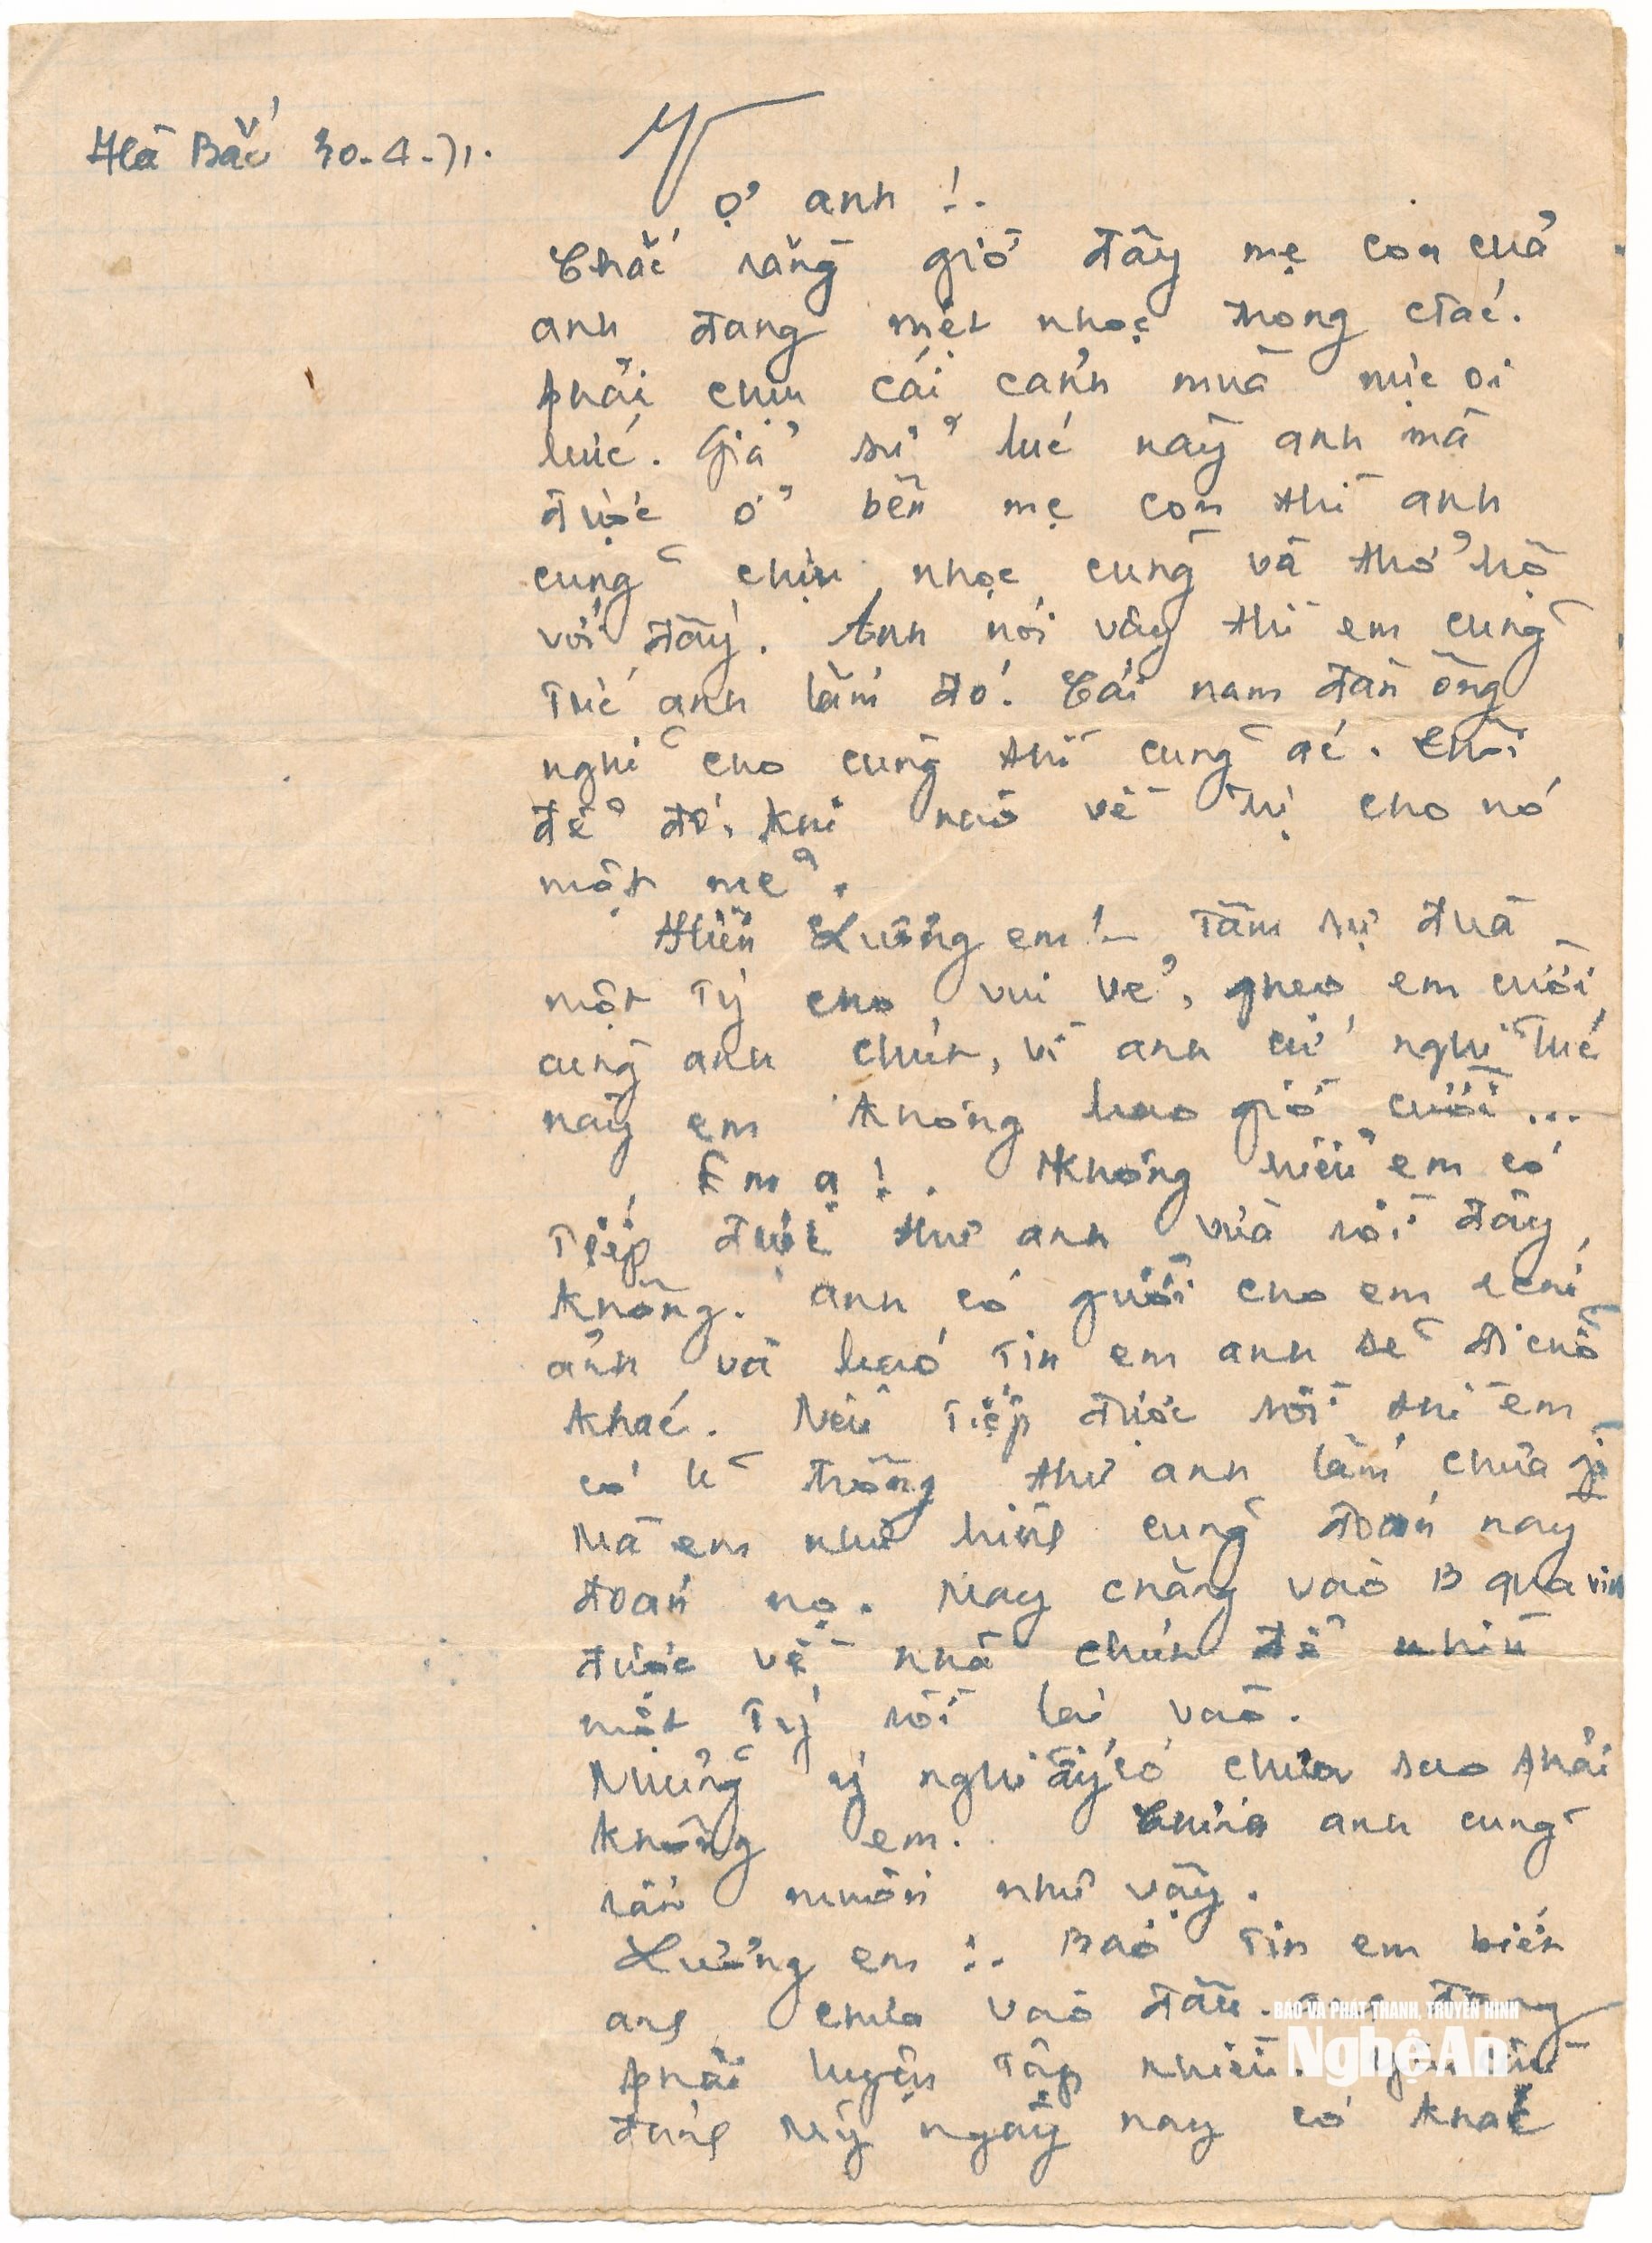 Hà Bắc 30-4-71.
Vợ anh!.
Chắc rằng giờ đây mẹ con của
anh đang mệt nhọc trong
phải chịu cái cảnh mùa nực oi
bức. Giả sử lúc này anh mà
được ở bên mẹ con thì anh
cũng chịu nhọc cùng và thở hộ
với đấy. Anh nói vậy thì em cũng
tức anh lắm đó. Cái nam đàn ông
nghĩ cho cùng thì cũng ác. Thôi
để đó, khi nào về trị cho nó
một mẻ.
Hiền Lương em! - Tâm sự đùa
một tý cho vui vẻ, ghẹo em cười
cùng anh chút, vì anh cứ nghĩ lúc
này em không bao giờ cười...
Em ạ!. Không hiểu em có
tiếp được thư anh vừa rồi đây
không. Anh có gửi cho em
ảnh và báo tin em anh sẽ đi chỗ
khác. Nếu tiếp được rồi thì em
có lẽ trông thư anh lắm chứa gì
Mà em như cũng đoán này
đoán nọ. May chăng vào B qua vinh
được về nhà chút để nhìn
một tý rồi lại vào.
Những ý nghĩ ấy có chưa sao phải
không em. Chính anh cũng
rất muốn như vậy.
Lương em!. Báo tin em biết
anh chưa vào đâu. đang
phải luyện tập nhiều.
đánh Mỹ ngày nay có khác
BÁO VÀ PHÁT THANH, TRUYỀN HÌNH
Nghệ An